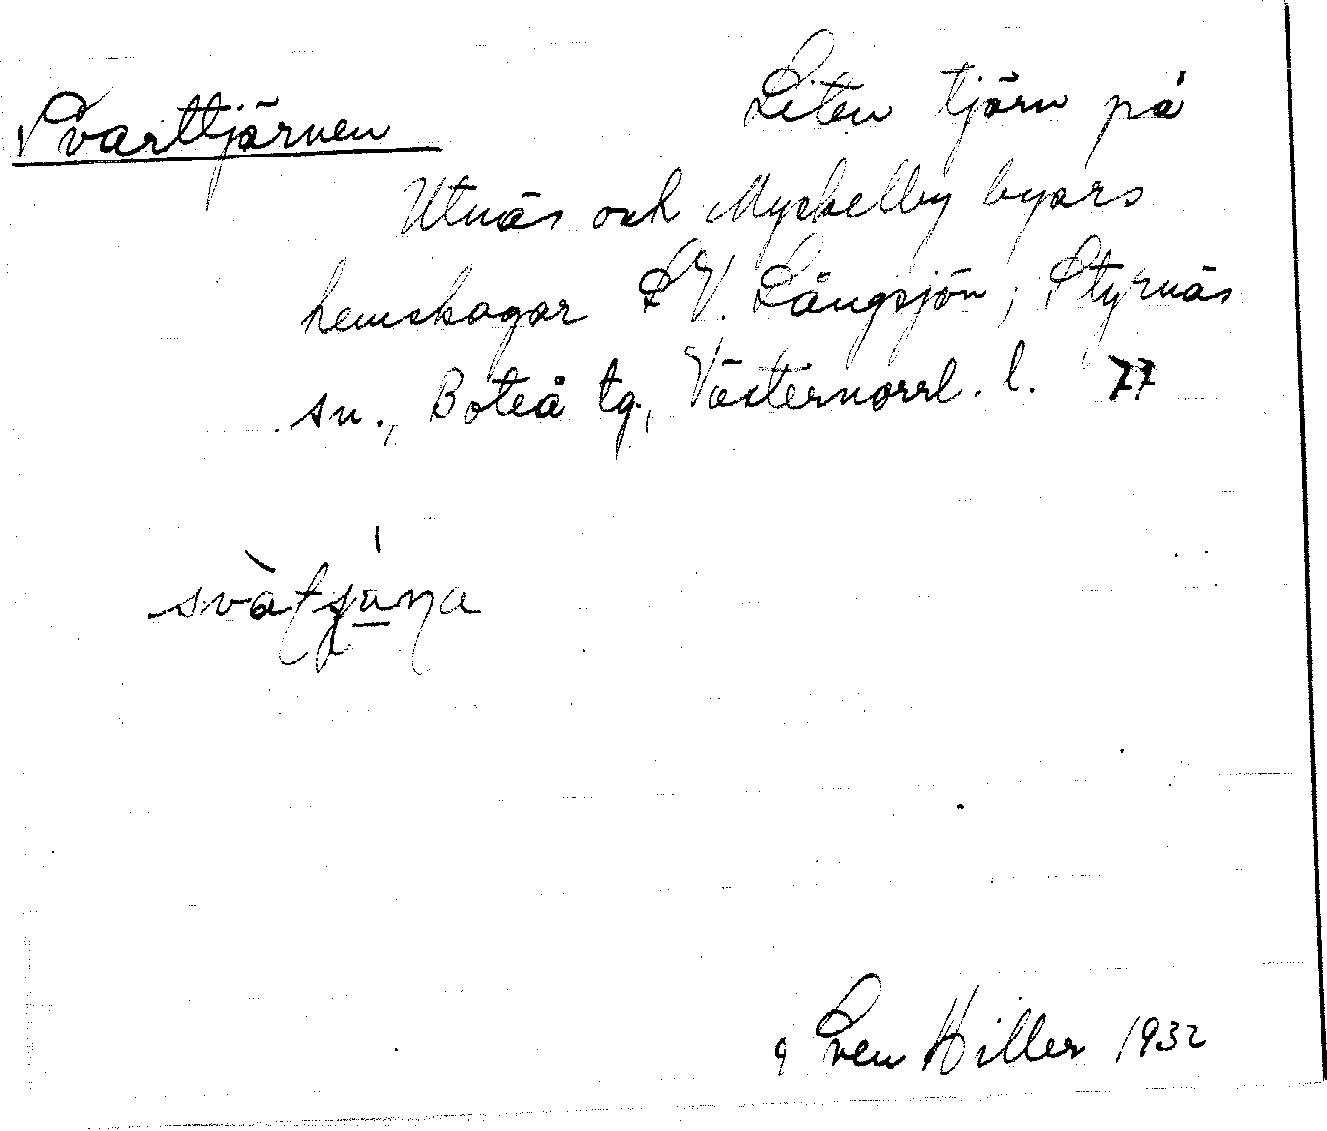 Svarttjärnen
Liten tjärn på
Utnäs och Myckelby byars
hemskogar SV. Långsjön, Styrnäs
sn., Boteå tg., Västernorrl. l. 77
Sven Hiller 1932